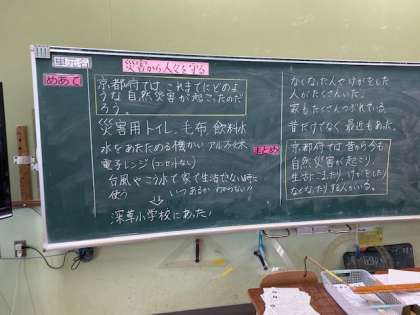 単元名
災害から人々を守る
めあて
京都府では、これまでにどのよ
うな自然災害が起こったのだ
ろう。
災害用トイレ、毛布、飲料水
水をあたためる機かい アルファ米
電子レンジ(コンセントなし)
台風やこう水で家で生活できない時に
使う
いつあるか わからない!!
深草小学校にあった!
なくなった人やけがをした
人がたくさんいた。
家もたくさんつぶれている。
昔だけでなく最近もあった。
まとめ
京都府では昔から今も
自然災害が起こり、
生活にこまったり、けがをしたり
なくなったりする人がいる。